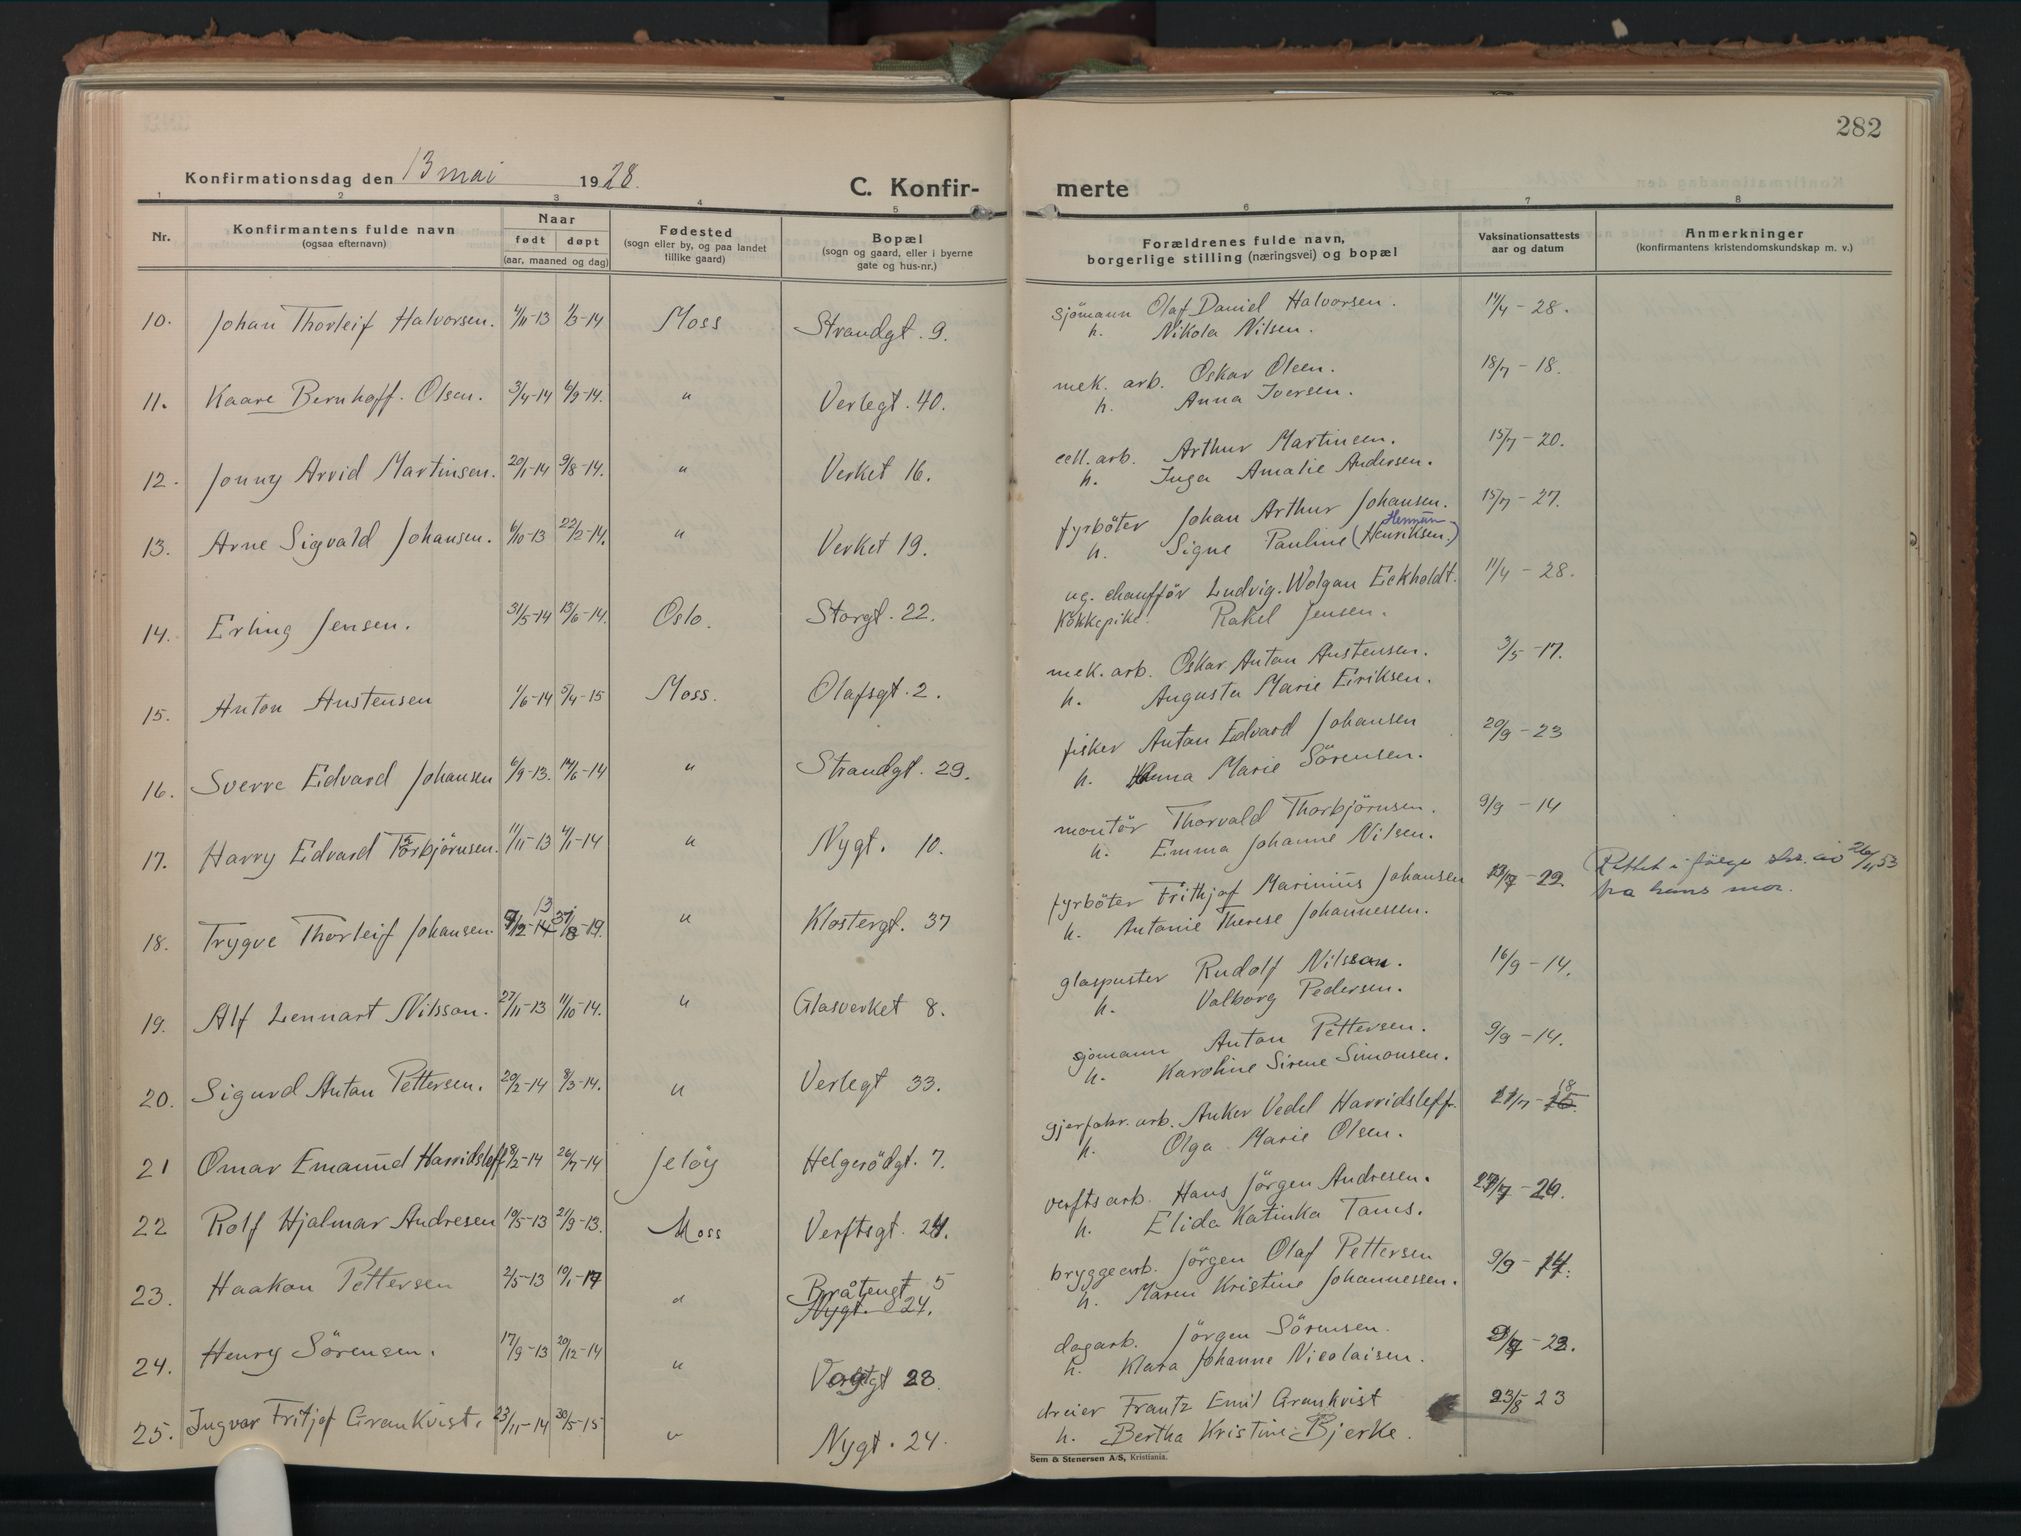 282
Konfirmationsdag den 13 mai 1928.
C. Konfir- merte
1 2 3 4 5 6 7 8
Nr.
Konfirmantens fulde navn
(ogsaa efternavn)
Naar
født døpt
(aar, maaned og dag)
Fødested
(sogn eller by, og paa landet
tillike gaard)
Bopæl
(sogn og gaard, eller i byerne
gate og hus-nr.)
Forældrenes fulde navn,
borgerlige stilling (næringsvei) og bopæl
Vaksinationsattests
aar og datum
Anmerkninger
(konfirmantens kristendomskundskap m. v.)
10. Johan Thorleif Halvorsen. 4/11-13 1/3-14 Moss Strandgt. 9. sjömann Olaf Daniel Halvorsen. 14/4 - 28.
h. Nikola Nilsen.
11. Kaare Bernhoff. Olsen. 3/4-14 6/9-14. " Verlegt. 40. mek. arb. Oskar Olsen. 18/7 - 18.
h. Anna Iversen.
12. Jonny Arvid Martinsen. 20/1-14 9/8-14. " Verket 16. cell. arb. Arthur Martinsen. 15/7 - 20.
h. Inga Amalie Andersen.
13. Arne Sigvald Johansen. 6/10-13 22/2-14. " Verket 19. fyrböter Johan Arthur Johansen. 15/7 - 27.
Herman
h. Signe Pauline (Henriksen.)
14. Erling Jensen. 31/5-14 13/6-14. Oslo. Storgt. 22. ug. chaufför Ludvig. Wolgan Eckholdt. 11/4 - 28.
Kökkepike. Rakel Jensen.
15. Anton Austensen 1/6-14 5/4-15 Moss. Olafsgt. 2. mek. arb. Oskar Anton Austensen. 3/5 - 17.
h. Augusta Marie Eriksen.
16. Sverre Edvard Johansen 6/9-13. 14/6-14 " Strandgt. 29. fisker Anton Edvard Johansen 20/9 - 23
h. Anna Marie Sörensen.
17. Harry Edvard Torbjörnsen. 11/11-13 4/1-14 " Nygt. 10. montör Thorvald Thorbjörnsen. 9/9 - 14
h. Emma Johanne Nilsen.
18. Trygve Thorleif Johansen 9/12-14 13 31/8-19. " Klostergt. 37 fyrböter Frithjof Marinius Johansen - 22. Rettet i følge skr. av 26/11 53
h. Antonie Therese Johannessen. fra hans mor.
19. Alf Lennart Nilsson. 27/11-13 11/10-14. " Glasverket 8. glaspuster Rudolf Nilsson. 16/9 - 14.
h. Valborg Pedersen.
20. Sigurd Anton Pettersen. 20/2-14 8/3-14. " Verlegt 33. sjömann Anton Pettersen. 9/9 - 14.
h. Karoline Sirene Simonsen.
21 Omar Emanuel Harridsleff 8/2-14 26/7-14 Jelöy Helgerödgt. 7. gjerfabr. arb. Anker Vedel Harridsleff. 21/7 - 15. 18
h. Olga Marie Olsen.
22 Rolf Hjalmar Andresen 10/5-13 21/9-13. Moss Verftsgt. 24. verftsarb. Hans Jörgen Andresen. 27/7 - 26.
h. Elida Katinka Tams.
23. Haakon Pettersen 2/5-13 10/1-17 " Bråtengt 5 bryggearb. Jörgen Olaf Pettersen 9/9 - 14.
Nygt. 24. h. Maren Kristine Johannessen.
24. Henry Sörensen. 17/9-13 20/12-14 " 23. dagarb. Jörgen Sörensen. - 23.
h. Klara Johanne Nicolaisen.
25. Ingvar Fritjof Grankvist. 23/11-14 30/5-15 " Nygt. 24. dreier Frantz Emil Grankvist 23/8 23
h. Bertha Kristine Bjerke.
Sem & Stenersen A/S, Kristiania.